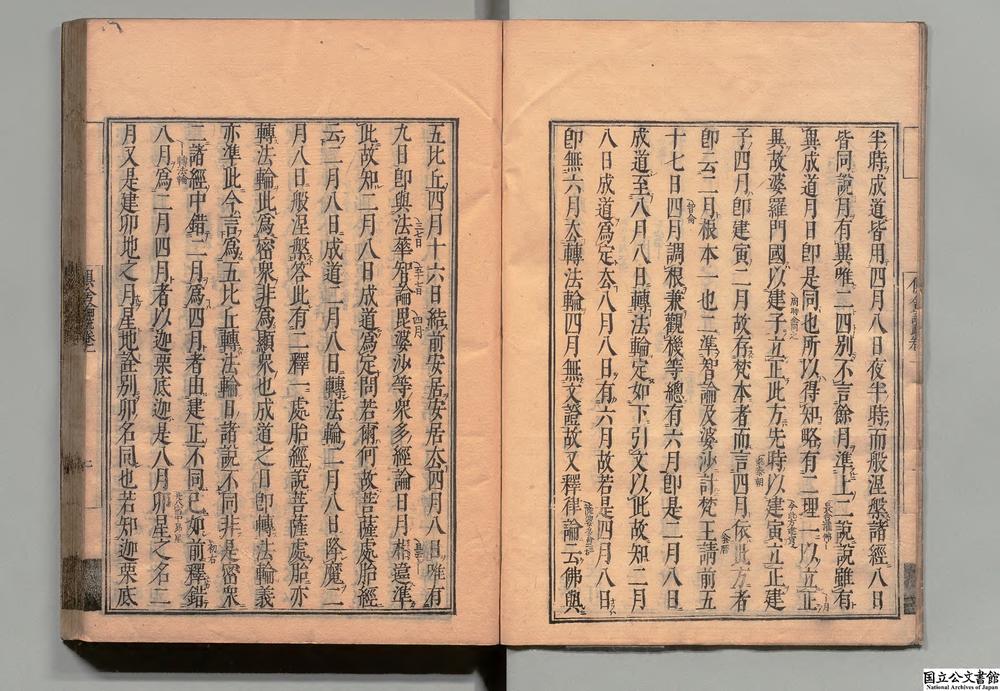 半時成道皆用四月八日夜半時而般涅槃諸經八日
皆同說月有異唯二四別不言餘月準上二說說雖有
異成道月日卽是同也所以得知略有二理一以立正
異故婆羅門國以建子立正此方先時以建寅立正建
子四月卽建寅二月故存梵本者而言四月依此方者
卽云二月根本一也二準智論及婆沙計梵王請前五
十七日四月調根兼觀機等總有六月卽是二月八日
成道至八月八日轉法輪定如下引文以此故知二月
八日成道爲定去八月八日有六月故若是四月八日
卽無六月去轉法輪四月無文證故又釋律論云佛與
五比丘四月十六日結前安居安居去四月八日唯有
九日卽與法華智論毘婆沙等衆多經論日月相違準
此故知二月八日成道爲定問若爾何故菩薩處胎經
云二月八日成道二月八日轉法輪二月八日降魔二
月八日般涅槃答此有二釋一處胎經說菩薩處胎亦
轉法輪此爲密衆非爲顯衆也成道之日卽轉法輪義
亦準此今言爲五比丘轉法輪日諸說不同非是密衆
二諸經中錯二月爲四月者由建正不同已如前釋錯
八月爲二月四月者以迦栗底迦是八月卯星之名二
月又是建卯地之月星地詮別卯名同也若知迦栗底
国立公文書館
National Archives of Japan